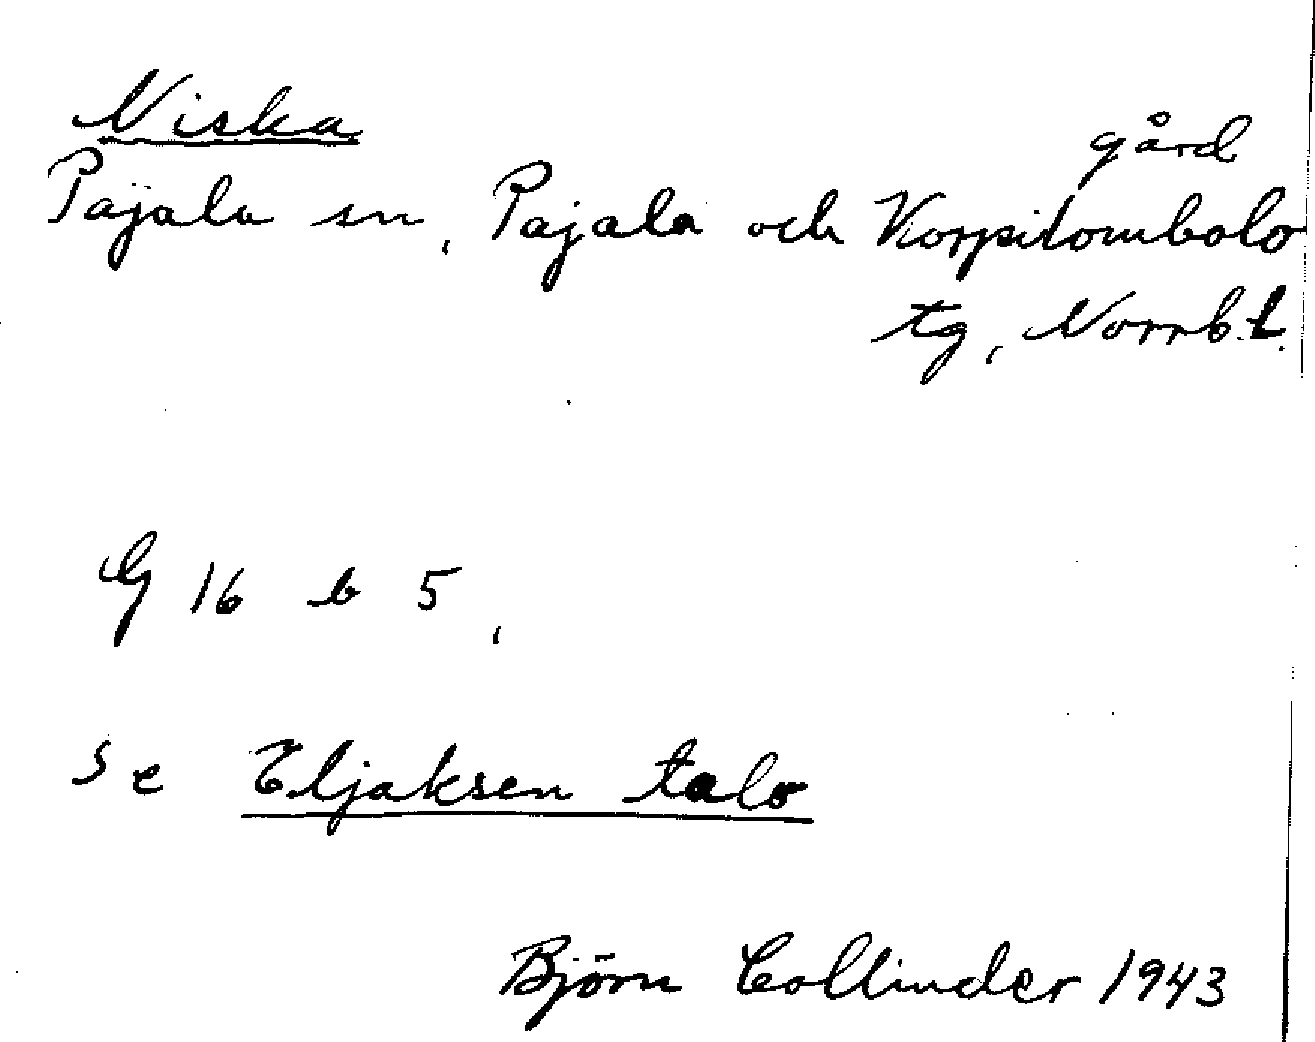 Niska
gård
Pajala sn, Pajala och Korpilombolo
tg, Norrb.l.
G 16 b 5,
se Eljaksen talo
Björn Collinder 1943